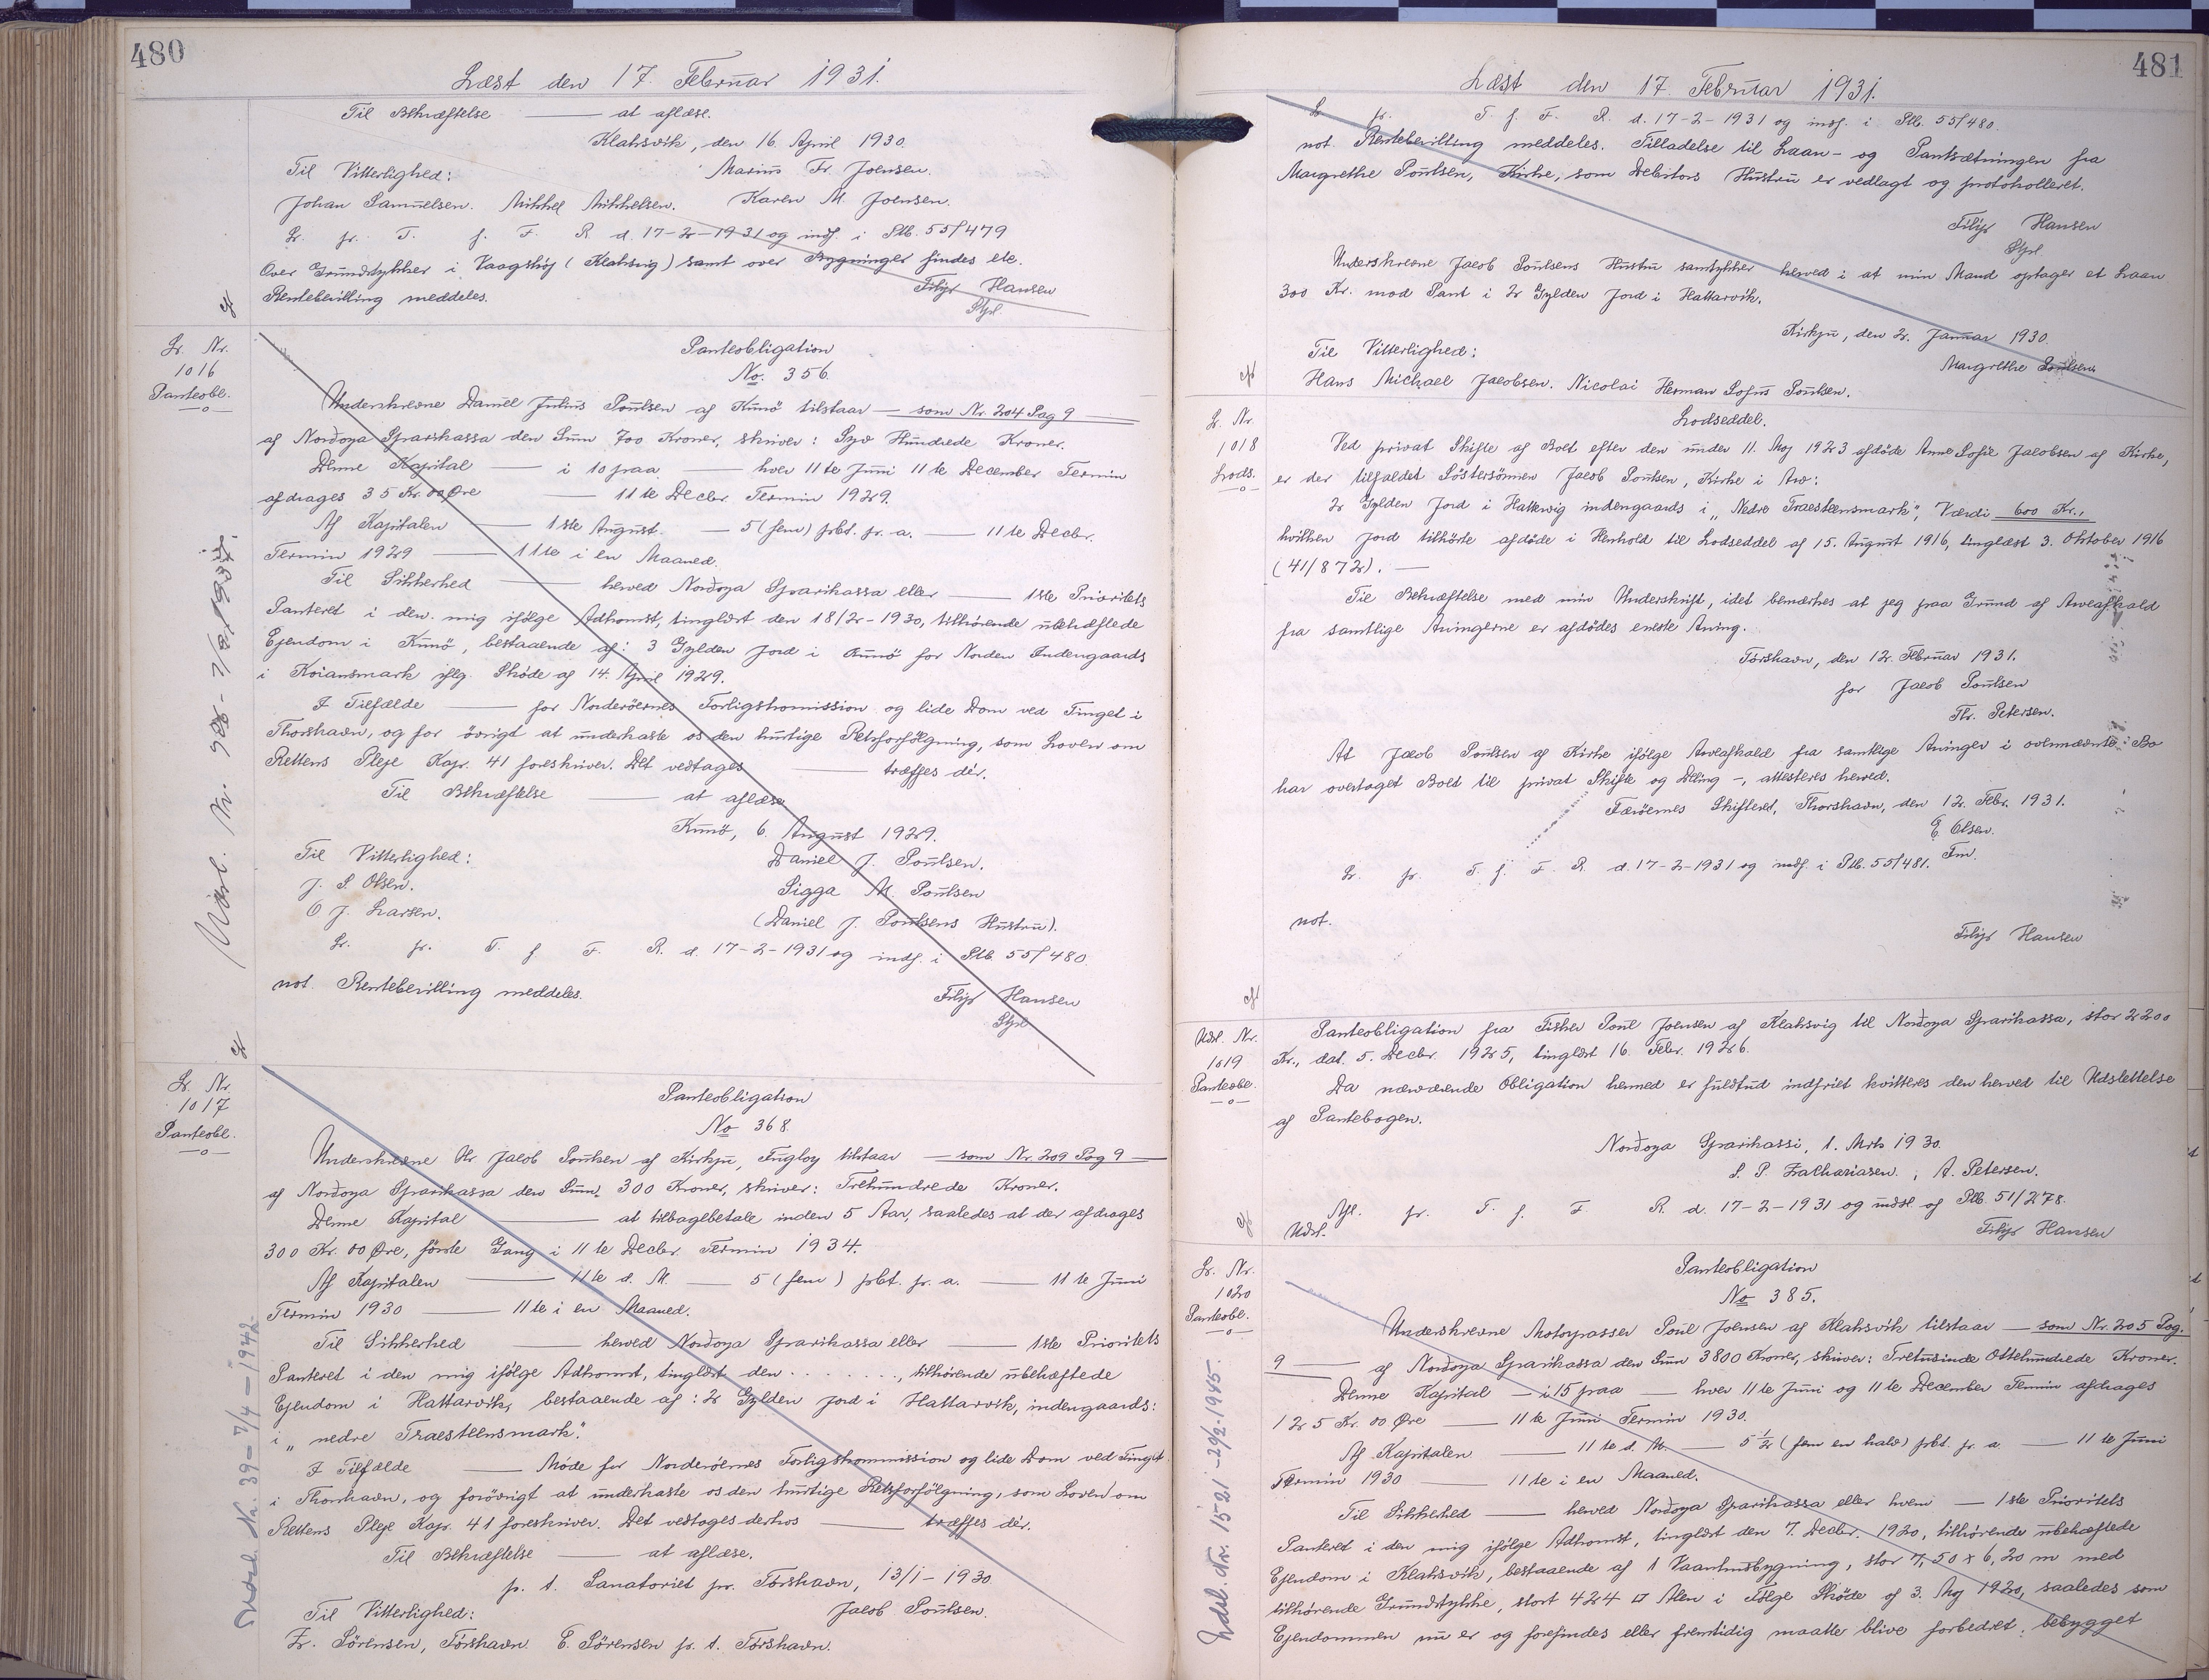 480
Læst den 17. Februar 1931.
Til Bekræftelse — at aflæse.
Klaksvik, den 16. April 1930.
Til Vitterlighed: Marius Fr. Joensen.
Johan Samuelsen. Mikkel Mikkelsen. Karen M. Joensen.
L. pr. T. f. F. R. d. 17-2-1931 og indf. i Ptb. 55/479
Over Grundstykker i Vaagshøj (Klaksvig) samt over Bygninger findes ele.
Rentebevilling meddeles. Filip Hansen
Stpl.
L. Nr.
1016
Panteobl.
—o—
Panteobligation
No. 356.
Underskrevne Daniel Julius Poulsen af Kunø tilstaar — som Nr. 204 Pag 9 —
af Norðoya Sparikassa den Sum 700 Kroner, skriver: Syv Hundrede Kroner.
Denne Kapital — i 10 paa — hver 11te Juni 11te December Termin
afdrages 35 Kr. 00 Øre — 11te Decbr. Termin 1929.
Af Kapitalen — 1ste August. — 5 (fem) pct. pr. a. — 11te Decbr.
Termin 1929 — 11te i en Maaned.
Til Sikkerhed — herved Norðoya Sparikassa eller — 1ste Prioritets
Panteret i den mig ifølge Adkomst, tinglæst den 18/2-1930, tilhørende ubehæftede
Ejendom i Kunø, bestaaende af: 3 Gylden Jord i Kunø for Norden Indengaards
i Koiansmark iflg. Skøde af 14. April 1929.
I Tilfælde — for Norderöernes Forligskomission og lide Dom ved Tinget i
Thorshavn, og for övrigt at underkaste os den hurtige Retsforfølgning, som Loven om
Rettens Pleje Kap. 41 foreskriver. Det vedtages — træffes dér.
Til Bekræftelse — at aflæse
Kunö, 6. August 1929.
Til Vitterlighed: Daniel J. Poulsen.
J. S. Olsen. Sigga M. Poulsen
O J. Larsen. (Daniel J. Poulsens Hustru).
L. pr. T. f F. R. d. 17-2-1931 og indf. i Ptb. 55/480.
not. Rentebevilling meddeles. Filip Hansen
Stpl
L. Nr.
1017
Panteobl.
—o—
Udsl. Nr. 39 - 7/4 - 1942
Panteobligation
No 368.
Underskrevne Hr Jacob Poulsen af Kirkju, Fugloy tilstaar — som Nr. 209 Pag 9 —
af Norðoya Sparikassa den Sum, 300 Kroner, skriver: Trehundrede Kroner.
Denne Kapital — at tilbagebetale inden 5 Aar, saaledes at der afdrages
300 Kr. 00 Øre, første Gang i 11te Decbr. Termin 1934.
Af Kapitalen — 11te d. M. — 5 (fem) pct. pr. a. — 11te Juni
Termin 1930 — 11te i en Maaned.
Til Sikkerhed — herved Norðoya Sparikassa eller — 1ste Prioritets
Panteret i den mig ifølge Adkomst, tinglæst den . . . . . . ., tilhørende ubehæftede
Ejendom i Hattarvik, bestaaende af: 2 Gylden Jord i Hattarvik, indengaards:
i „nedre Traesteensmark".
I Tilfælde — Møde for Norderöernes Forligskommission og lide Dom ved Tinget
i Thorshavn, og forövrigt at underkaste os den hurtige Retsforfølgning, som Loven om
Rettens Pleje Kap. 41 foreskriver. Det vedtages derhos — træffes dér.
Til Bekræftelse — at aflæse.
p. t. Sanatoriet pr. Tórshavn, 13/1-1930.
Til Vitterlighed: Jacob Poulsen.
Fr. Sörensen, Tórshavn. E. Sörensen p. t. Tórshavn.
481
Læst den 17. Februar 1931.
L pr. T. f. F. R. d. 17-2-1931 og indf. i Ptb. 55/480.
not. Rentebevilling meddeles. Tilladelse til Laan- og Pantsætningen fra
Margrethe Poulsen, Kirke, som Debitors Hustru er vedlagt og protokolleret.
Filip Hansen
Stpl
Underskrevne Jacob Poulsens Hustru samtykker herved i at min Mand optager et Laan
300 Kr. mod Pant i 2 Gylden Jord i Hattarvik.
Kirkju, den 2. Januar 1930.
Til Vitterlighed: Margrethe Poulsen
Hans Michael Jacobsen. Nicolai Herman Sofus Poulsen.
L. Nr.
1018
Lods.
—o—
Lodseddel.
Ved privat Skifte af Boet efter den under 11. Maj 1923 afdöde Anne Sofie Jacobsen af Kirke,
er der tilfaldet Söstersönnen Jacob Poulsen, Kirke i Arv:
2 Gylden Jord i Hattervig indengaards i „Nedre Traesteensmark", Værdi 600 Kr.,
hvilken Jord tilhörte afdöde i Henhold til Lodseddel af 15. August 1916, tinglæst 3. Oktober 1916
(41/872). —
Til Bekræftelse med min Underskrift, idet bemærkes at jeg paa Grund af Arveafkald
fra samtlige Arvingerne er afdödes eneste Arving.
Tórshavn, den 12. Februar 1931.
for Jacob Poulsen
Th. Petersen.
At Jacob Poulsen af Kirke ifølge Arveafkald fra samtlige Arvinger i ovennævnte Bo
har overtaget Boet til privat Skifte og Deling -, attesteres herved.
Færöernes Skifteret, Thorshavn, den 12. Febr. 1931.
E. Olsen.
Fm.
L. pr. T. f. F. R. d. 17-2-1931 og indf. i Ptb. 55/481.
not.
Filip Hansen
Udsl. Nr.
1019
Panteobl.
—o—
Panteobligation fra Fisker Poul Joensen af Klaksvig til Norðoya Sparikassa, stor 2200
Kr., dat. 5. Decbr. 1925, tinglæst 16. Febr. 1926.
Da nærværende Obligation hermed er fuldtud indfriet kvitteres den herved til Udslettelse
af Pantebogen.
Norðoya Sparikassi, 1. Mrts 1930.
S. P. Zachariasen. , A. Petersen.
Afl. pr. T. f. F R. d. 17-2-1931 og udsl. af Ptb. 51/278.
Udsl. Filip Hansen
L. Nr.
1020
Panteobl.
—o—
Udsl. Nr. 1521 - 29/2-1945.
Panteobligation
No 385.
Underskrevne Motorpasser Poul Joensen af Klaksvik tilstaar — som Nr. 205 Pag.
9 — af Norðoya Sparikassa den Sum 3800 Kroner, skriver: Tretusinde Ottehundrede Kroner.
Denne Kapital — i 15 paa — hver 11te Juni og 11te December Termin afdrages
125 Kr. 00 Øre — 11te Juni Termin 1930.
Af Kapitalen — 11te d. M. — 5 1/2 (fem en halv) pct. pr. a. — 11te Juni
Termin 1930 — 11te i en Maaned.
Til Sikkerhed — herved Norðoya Sparikassa eller hvem — 1ste Prioritets
Panteret i den mig ifølge Adkomst, tinglæst den 7. Decbr. 1920, tilhørende ubehæftede
Ejendom i Klaksvik, bestaaende af 1 Vaaningsbygning, stor 7,50 x 6,20 m med
tilhørende Grundstykke, stort 424 □ Alen i Følge Skøde af 3. Maj 1920, saaledes som
Ejendommen nu er og forefindes eller fremtidig maatte blive forbedret, bebygget